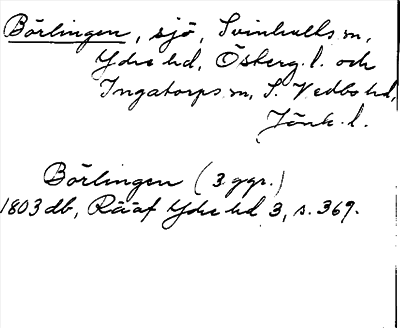 Börlingen, sjö, Svinhults sn,
Ydre hd, Österg. l. och
Ingatorps sn, S. Vedbo hd,
Jönk. l.
Börlingen (3 ggr.)
1803 db, Rääf Ydre hd 3, s. 369.